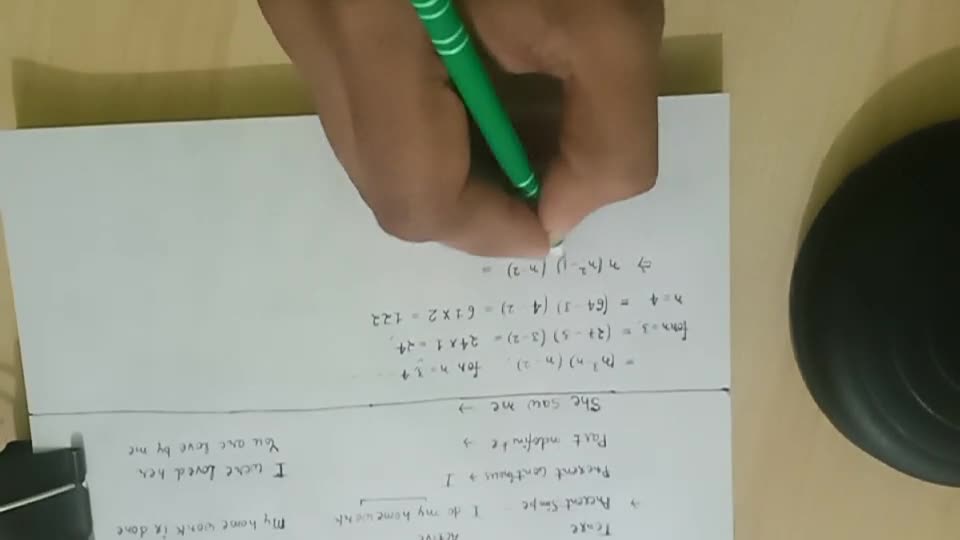 Tense Active
→ Present Simple I do my home work My home work is done
Present continuous → I I were loved her
Past indefinite → You are love by me
She saw me →
= (n³-n) (n-2) for n = 3, 4
for n=3, = (27-3) (3-2) = 24×1 = 24,
n=4 = (64-3) (4-2) = 61×2 = 122
⇒ n(n²-1) (n-2) =